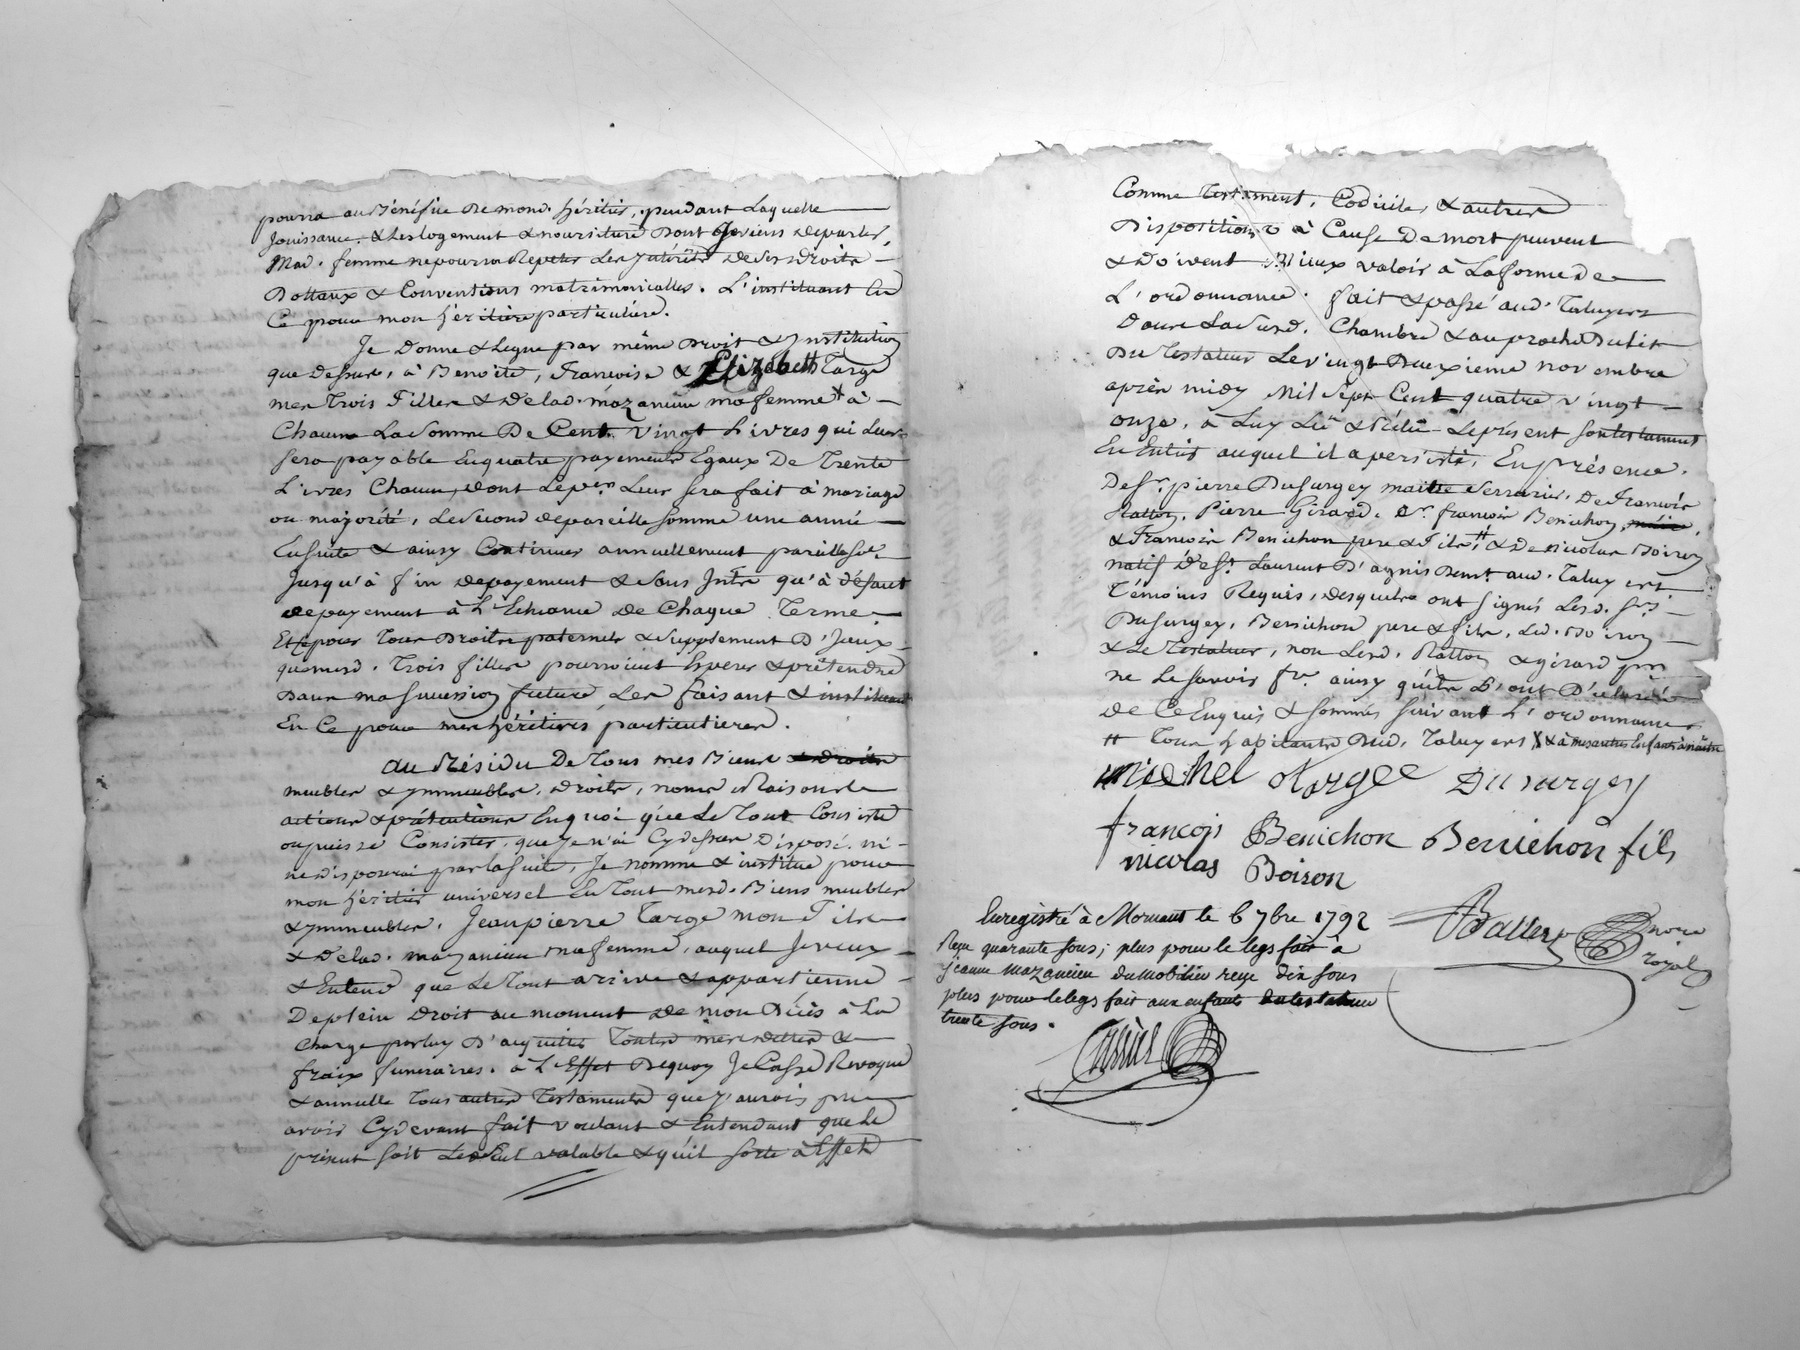 pourra au Bénéfice de mond. héritier, pendant Laquelle
Jouissance, & Les logement & nourriture dont Je viens de parler,
Mad. femme ne pourra Repeter Les Intérêts de Ses droits
Dottaux & Conventions matrimonialles. L'instituant En
Ce pour mon héritiere particuliére.
Je Donne & Legue par même droit & Institution
que dessus, à Benoite, francoise & Elizabeth Targe
mes Trois Filles & de lad. mazancieu ma femme à
Chacune La Somme De Cent vingt Livres qui Leur
Sera payable En quatre payements Egaux De Trente
Livres Chacun, dont Le per Leur Sera fait à mariage
ou majorité, Le Second de pareille Somme une année
Ensuite & ainsy Continuer annuellement pareille Some
Jusqu'à fin de payement & Sans Intrt qu'à défaut
de payement à L'Echeance de Chaque Terme.
Et Ce pour Tous Droits paternels & Supplement D'Iceux
que mesd. Trois filles pourroient Esperer & prétendre
Dans ma Succession future, Les faisant & instituant
En Ce pour mes héritieres particulieres.
Au Résidu De Tous mes Biens & Droits
meubles & immeubles, droits, noms Raisons
actions & prétentions En quoi que Le Tout Consiste
ou puisse Consister, que Je n'ai Cy dessus Disposé ni
ne disposerai par la Suite, Je nomme & institue pour
mon héritier universel En Tout mesd. Biens meubles
& immeubles, Jean pierre Targe mon Fils
& de lad. mazancieu ma femme, auquel Je veux
& Entend que Le Tout arrive & appartienne
De plein Droit au moment de mon Décès à La
Charge par luy D'acquitter Toutes mes dettes &
fraix funeraires. à L'Effet Dequoy Je Casse Revoque
& annulle Tous autres Testaments que J'aurois pu
avoir Cy devant fait voulant & Entendant que Le
présent soit Le Seul valable & qu'il sorte à Effet
Comme Testament, Codicile, & autres
Dispositions à Cause De mort peuvent
& Doivent Mieux valoir à La forme De
L'ordonnance. fait & passé aud. Taluyers
Dans La Susd. Chambre & au proche Du Lit
Du Testateur Le vingt Deuxieme novembre
après midy Mil Sept Cent quatre vingt
onze, à Luy Lu & Rélu Le présent Son testament
En Entier auquel il a persisté, En présence
De Sr. pierre Dusurgey maitre Serrurier, De Francois
Ratton, Pierre Girard, Sr. francois Benichon
& Francois Benichon pere & fils, # & De nicolas Boiron
natif de St. Laurent D'agnis demt. aud. Taluyers
Témoins Requis, desquels ont Signés Lesd. Srs.
Dusurgey, Benichon pere & fils, Led. Boiron
& Le Testateur, non Lesd. Ratton & girard pour
ne Le Savoir fre. ainsy qu'ils L'ont Déclaré
de Ce Enquis & Sommés Suivant L'ordonnance
# Tous habitants Dud. Taluyers X & à mes autres Enfants à naitre
michel Targe Dusurgey
françois Benichon Benichon fils
nicolas Boiron
Enregistré à Mornant le 6 7bre 1792
Reçu quarante sous; plus pour le legs fait à
jeanne Mazancieu du mobilier reçu dix sous
plus pour le legs fait aux enfants du testateur
trente sous.
nore
royal